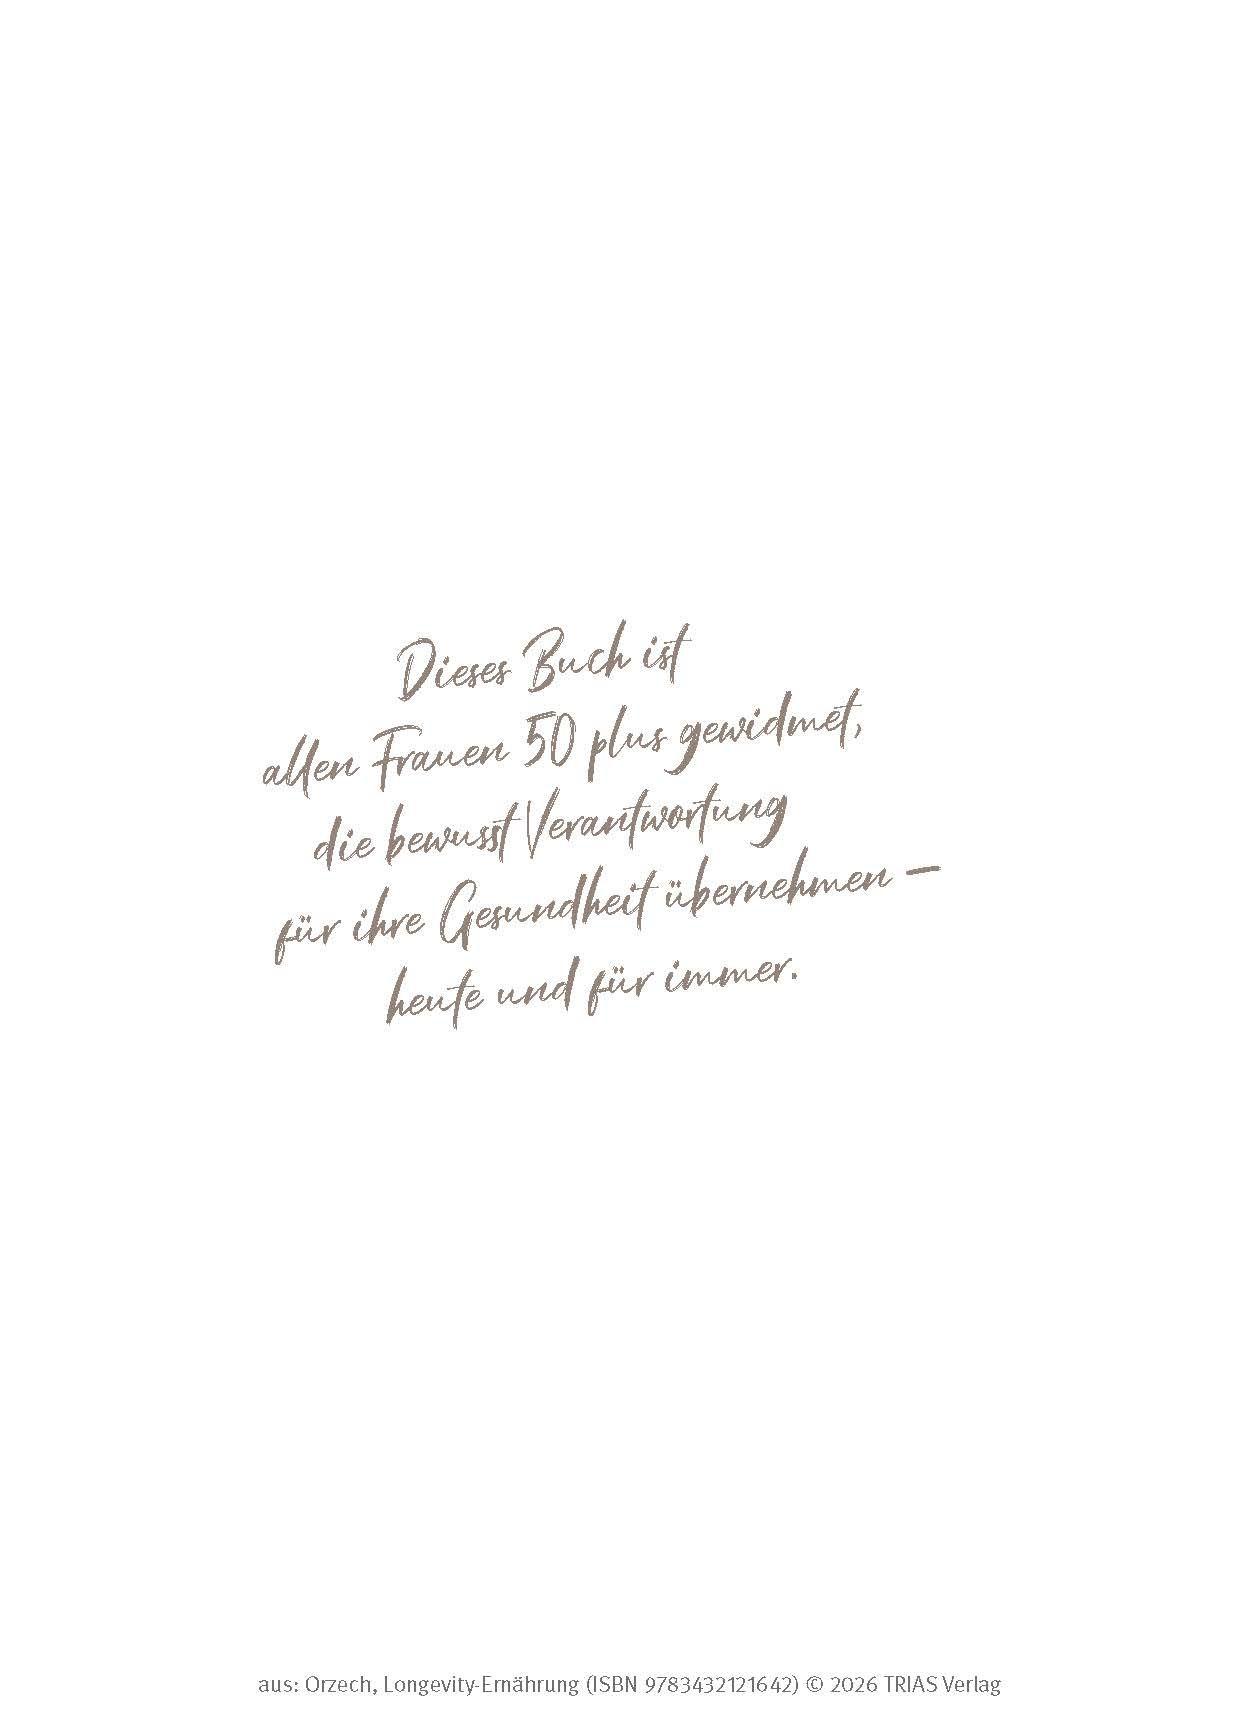 Dieses Buch ist
allen Frauen 50 plus gewidmet,
die bewusst Verantwortung
für ihre Gesundheit übernehmen –
heute und für immer.
aus: Orzech, Longevity-Ernährung (ISBN 9783432121642) © 2026 TRIAS Verlag